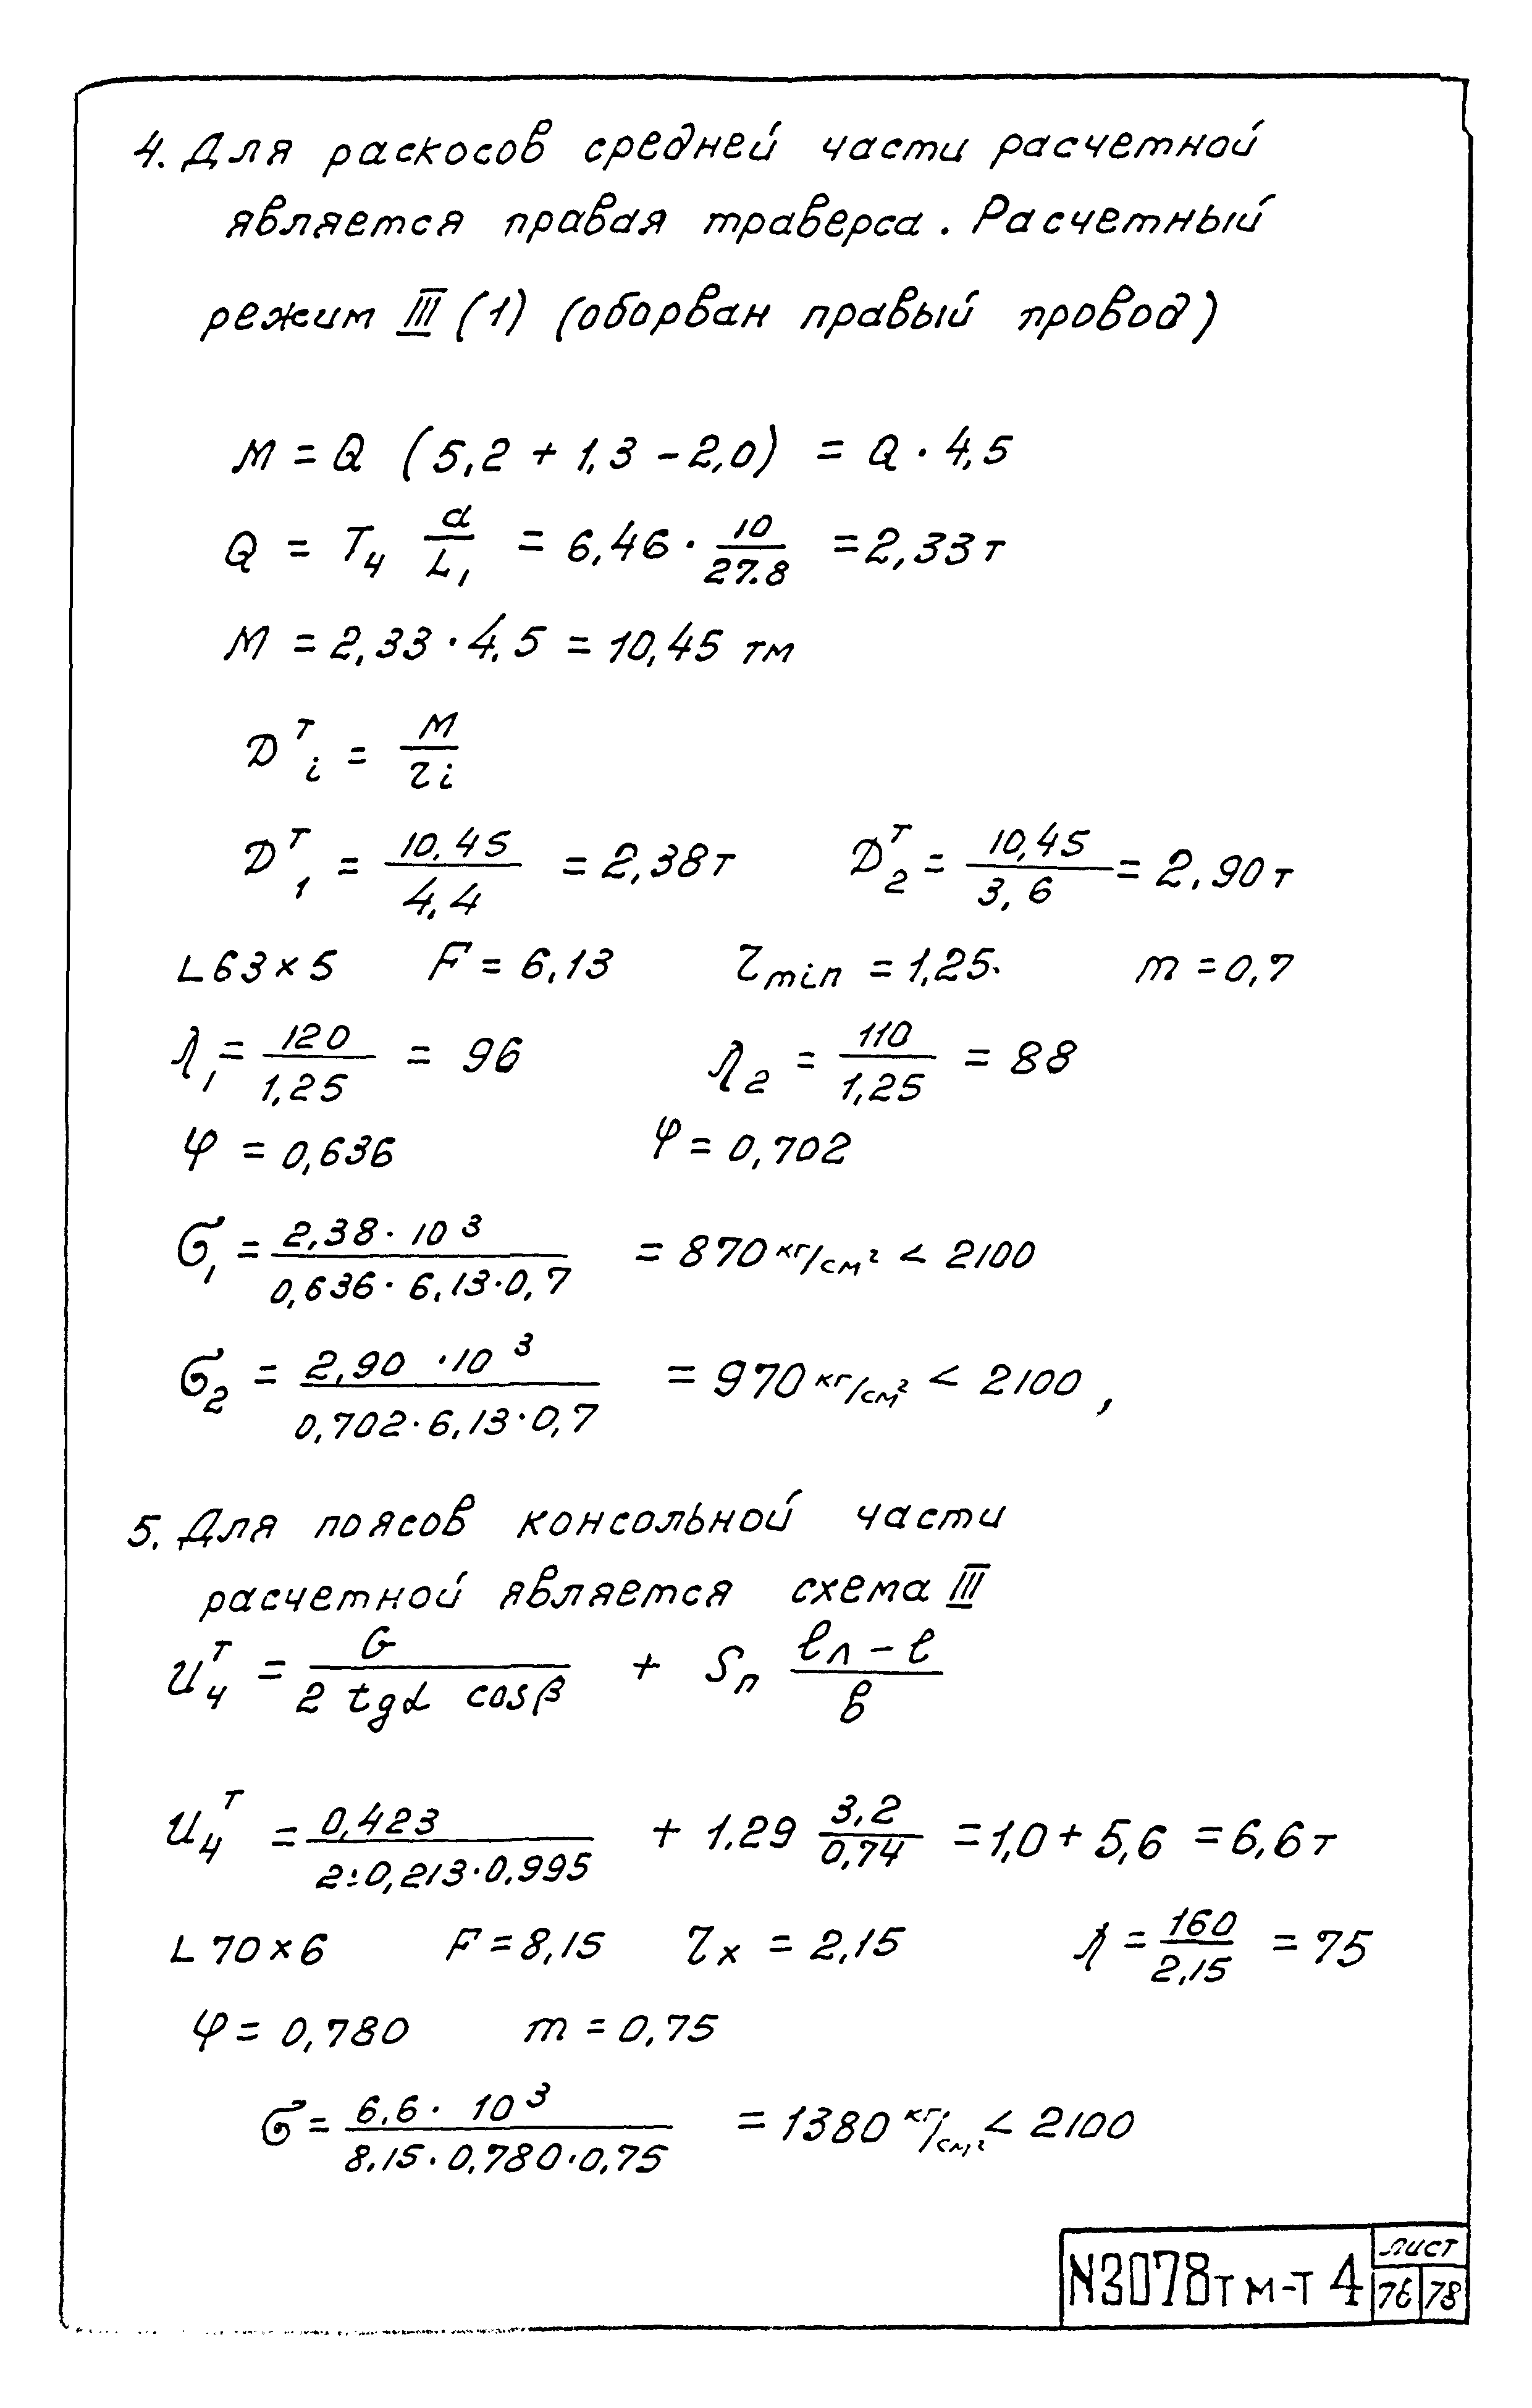 4. Для раскосов средней части расчетной
является правая траверса. Расчетный
режим III (1) (оборван правый провод)
M = Q (5,2 + 1,3 - 2,0) = Q · 4,5
Q = T₄ a/L₁ = 6,46 · 10/27.8 = 2,33 т
M = 2,33 · 4,5 = 10,45 тм
Dᵀi = M/ri
Dᵀ₁ = 10,45/4,4 = 2,38 т D₂ᵀ = 10,45/3,6 = 2,90 т
L 63×5 F = 6,13 r min = 1,25. m = 0,7
λ₁ = 120/1,25 = 96 λ₂ = 110/1,25 = 88
φ = 0,636 φ = 0,702
σ₁ = 2,38 · 10³/0,636 · 6,13 · 0,7 = 870 кг/см² < 2100
σ₂ = 2,90 · 10³/0,702 · 6,13 · 0,7 = 970 кг/см² < 2100,
5. Для поясов консольной части
расчетной является схема III
U₄ᵀ = G/2 tgα cosβ + Sп ℓп - ℓ/в
U₄ᵀ = 0,423/2·0,213·0,995 + 1.29 3,2/0,74 = 1,0 + 5,6 = 6,6 т
L 70×6 F = 8,15 rx = 2,15 λ = 160/2,15 = 75
φ = 0,780 m = 0,75
σ = 6,6 · 10³/8,15 · 0,780 · 0,75 = 1380 кг/см² < 2100
N3078тм-т4 лист
76 78